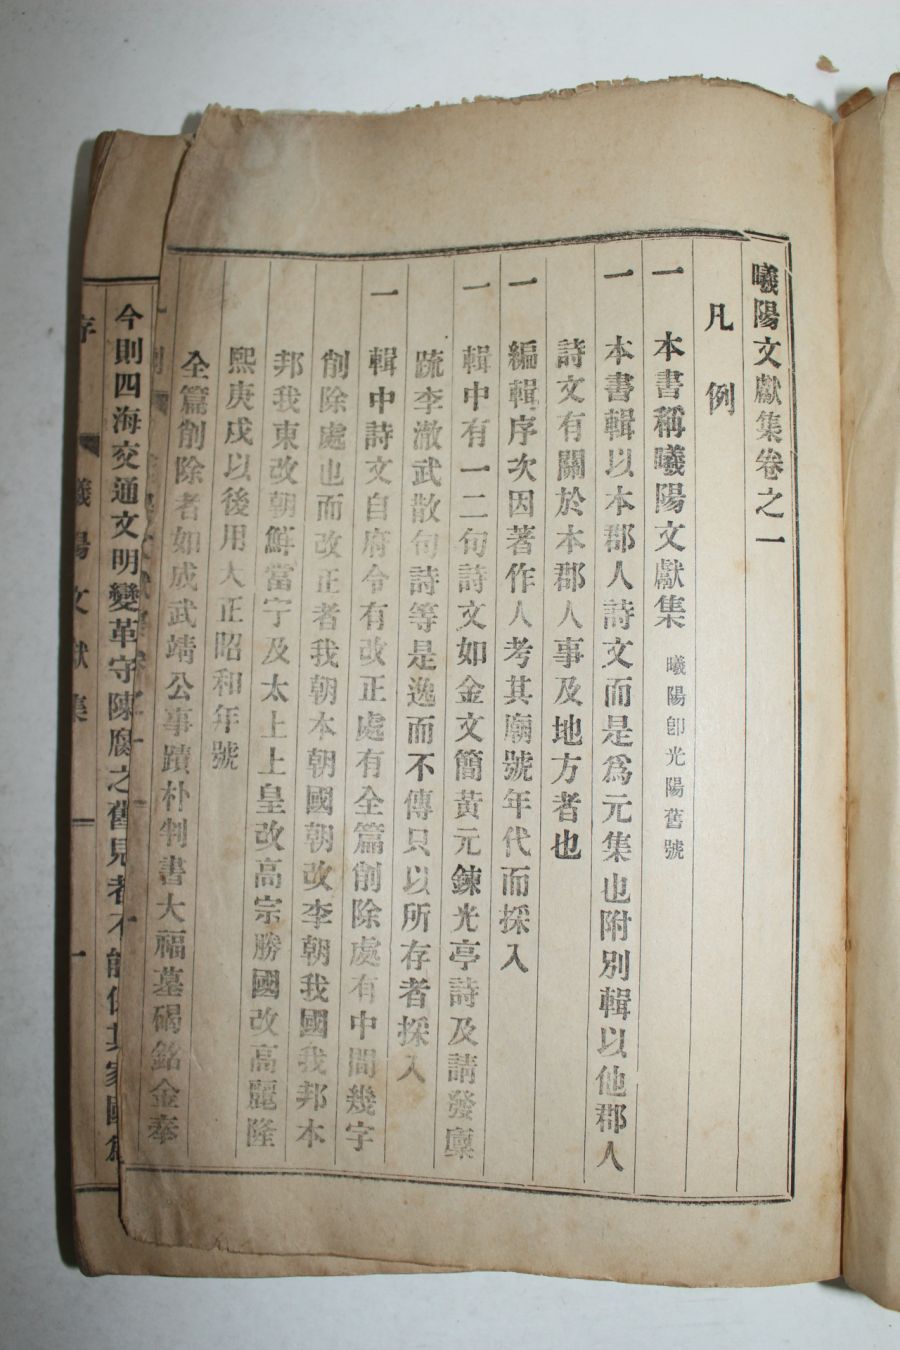 曦陽文獻集卷之一
凡例
一 本書稱曦陽文獻集 曦陽卽光陽舊號
一 本書輯以本郡人詩文而是爲元集也附別輯以他郡人
詩文有關於本郡人事及地方者也
一 編輯序次因著作人考其廟號年代而採入
一 輯中有一二句詩文如金文簡黃元鍊光亭詩及請發廩
疏李澈武散句詩等是逸而不傳只以所存者採入
一 輯中詩文自府令有改正處有全篇削除處有中間幾字
削除處也而改正者我朝本朝國朝改李朝我國我邦本
邦我東改朝鮮當宁及太上上皇改高宗勝國改高麗隆
熙庚戌以後用大正昭和年號
全篇削除者如成武靖公事蹟朴判書大福墓碣銘金奉
今則四海交通文明變革守陳腐之舊見者不能保其家國
序 曦陽文獻集 一